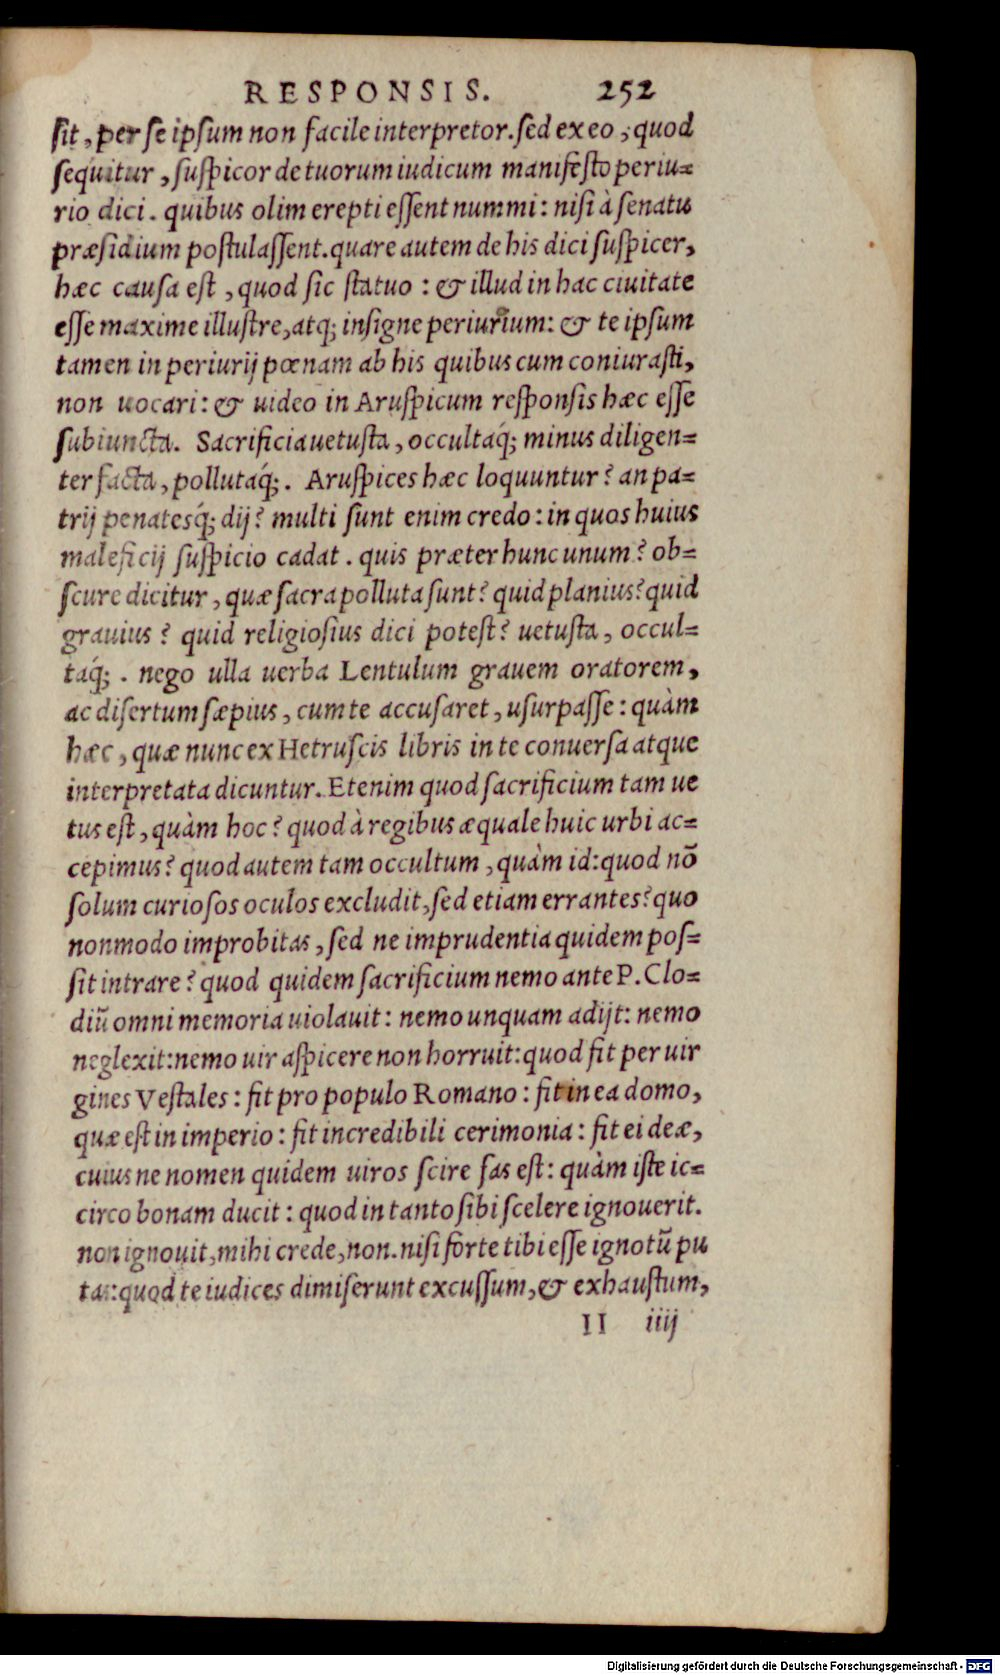 RESPONSIS. 252
ſit, per ſe ipſum non facile interpretor. ſed ex eo, quod
ſequitur, ſuſpicor de tuorum iudicum manifeſto periu=
rio dici. quibus olim erepti eſſent nummi: niſi à ſenatu
præſidium poſtulaſſent. quare autem de his dici ſuſpicer,
hæc cauſa eſt, quod ſic ſtatuo: & illud in hac ciuitate
eſſe maxime illuſtre, atq; inſigne periurium: & te ipſum
tamen in periurij pœnam ab his quibus cum coniuraſti,
non uocari: & uideo in Aruſpicum reſponſis hæc eſſe
ſubiuncta. Sacrificia uetuſta, occultaq́; minus diligen=
ter facta, pollutaq́;. Aruſpices hæc loquuntur? an pa=
trij penatesq́; dij? multi ſunt enim credo: in quos huius
maleficij ſuſpicio cadat. quis præter hunc unum? ob=
ſcure dicitur, quæ ſacra polluta ſunt? quid planius? quid
grauius? quid religioſius dici poteſt? uetuſta, occul=
taq́;. nego ulla uerba Lentulum grauem oratorem,
ac diſertum ſæpius, cum te accuſaret, uſurpaſſe: quàm
hæc, quæ nunc ex Hetruſcis libris in te conuerſa atque
interpretata dicuntur. Etenim quod ſacrificium tam ue
tus eſt, quàm hoc? quod à regibus æquale huic urbi ac=
cepimus? quod autem tam occultum, quàm id: quod nō
ſolum curioſos oculos excludit, ſed etiam errantes? quo
nonmodo improbitas, ſed ne imprudentia quidem poſ=
ſit intrare? quod quidem ſacrificium nemo ante P. Clo=
diū omni memoria uiolauit: nemo unquam adijt: nemo
neglexit: nemo uir aſpicere non horruit: quod fit per uir
gines Veſtales: fit pro populo Romano: fit in ea domo,
quæ eſt in imperio: fit incredibili cerimonia: fit ei deæ,
cuius ne nomen quidem uiros ſcire fas eſt: quàm iſte ic=
circo bonam ducit: quod in tanto ſibi ſcelere ignouerit.
non ignouit, mihi crede, non. niſi forte tibi eſſe ignotū pu
tas: quod te iudices dimiſerunt excuſſum, & exhauſtum,
II iiij
Digitalisierung gefördert durch die Deutsche Forschungsgemeinschaft - DFG